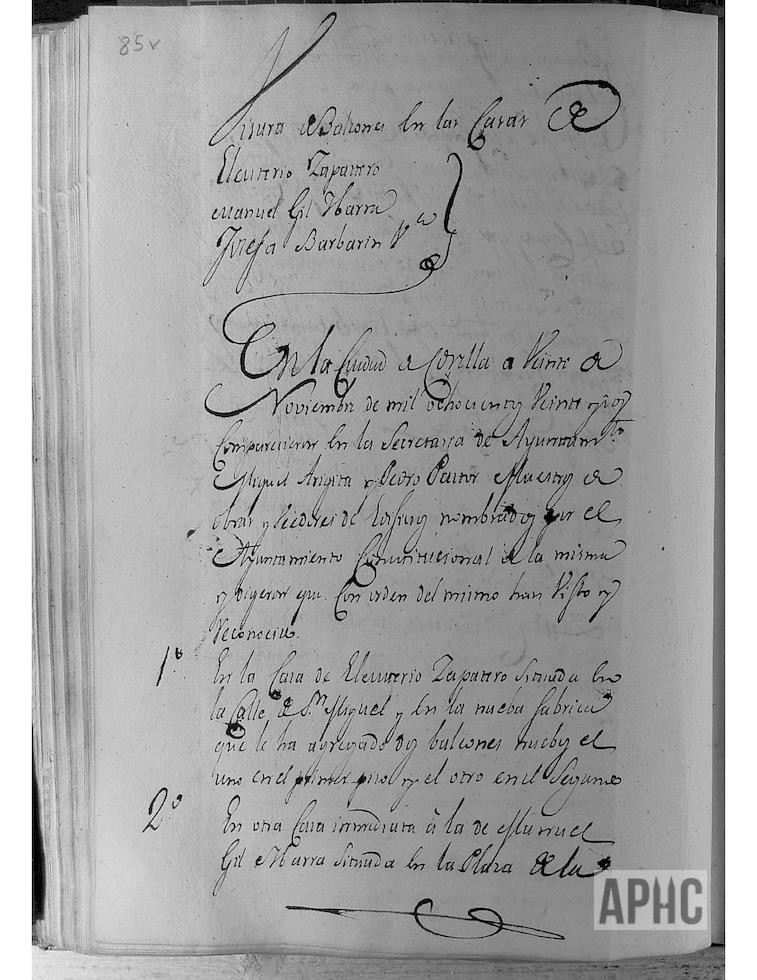 85v
Visura de Balcones en las Casas de
Eleuterio Zapatero
Manuel Gil Ybarra
Josefa Barbarin
En la Ciudad de Corella a Veinte de
Noviembre de mil ochocientos Veinte y dos
Comparecieron en la Secretaria de Ayuntam.to
Miguel Arigita y Pedro Pastor Maestros de
obras y Veedores de Edificios nombrados por el
Ayuntamiento Constitucional de la misma
y digeron que Con orden del mismo han Visto y
Reconocido.
1º En la Casa de Eleuterio Zapatero Situada en
la Calle de S.n Miguel y en la nueba fabrica
que le ha agregado dos balcones nuebos el
uno en el primer piso y el otro en el Segundo
2º En otra Casa inmediata à la de Manuel
Gil Ybarra Situada en la Plaza de la
APHC